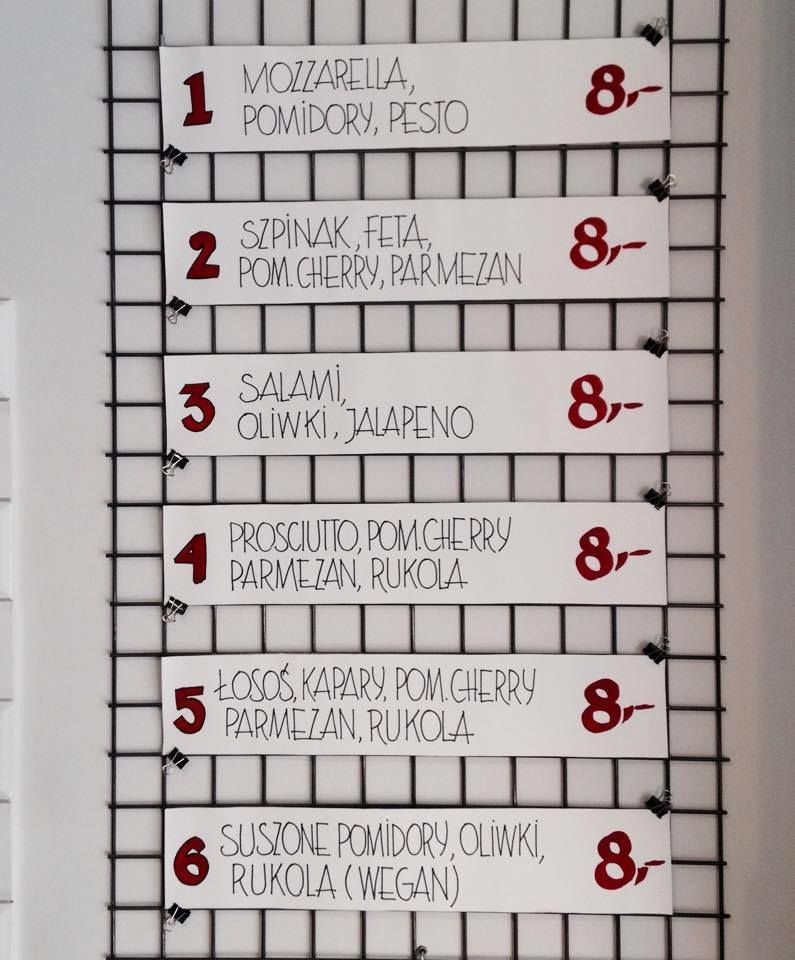 1 MOZZARELLA, 8,-
POMIDORY, PESTO
2 SZPINAK, FETA, 8,-
POM. CHERRY, PARMEZAN
3 SALAMI, 8,-
OLIWKI, JALAPENO
4 PROSCIUTTO, POM. CHERRY 8,-
PARMEZAN, RUKOLA
5 ŁOSOŚ, KAPARY, POM. CHERRY 8,-
PARMEZAN, RUKOLA
6 SUSZONE POMIDORY, OLIWKI, 8,-
RUKOLA (WEGAN)